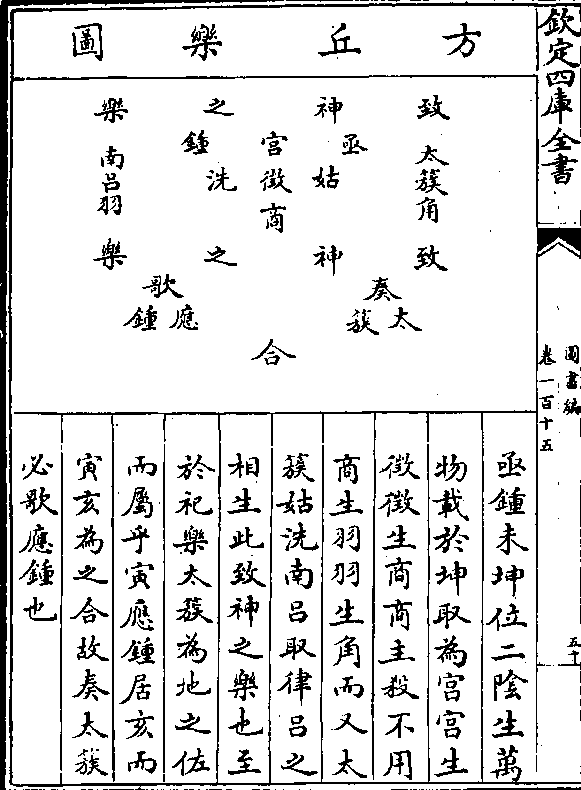 欽定四庫全書
圖書編
卷一百十五
五十
方丘樂圖
致神之樂
函宮鍾
太簇角
姑徵洗
商
南呂羽
致神之樂
奏太簇
歌應鍾
合
函鍾未坤位二陰生萬
物載於坤取為宮宮生
徵徵生商商主殺不用
商生羽羽生角而又太
簇姑洗南呂取律呂之
相生此致神之樂也至
於祀樂太簇為地之佐
而屬乎寅應鍾居亥而
寅亥為之合故奏太簇
必歌應鍾也